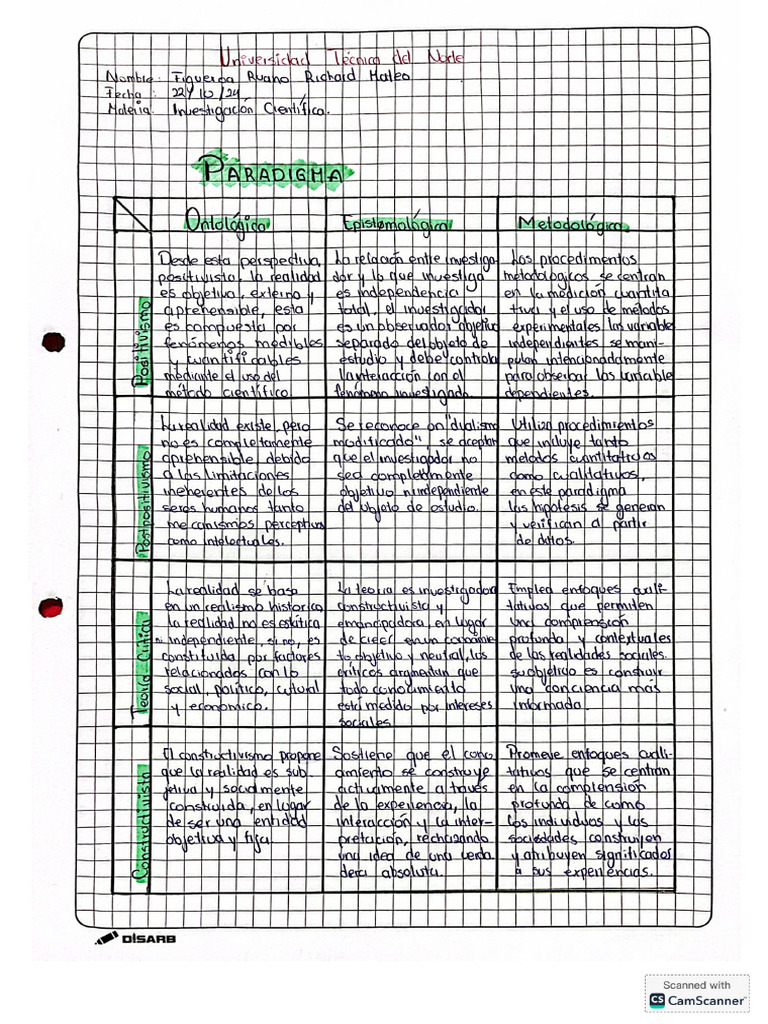 Universidad Técnica del Norte
Nombre: Figueroa Ruano Richard Mateo
Fecha : 22/10/24
Materia: Investigación Científica.
PARADIGMA
Ontológica
Epistemológica
Metodológica
Positivismo
Desde esta perspectiva,
positivista, la realidad
es objetiva, externa y
aprehensible, esta
es compuesta por
fenómenos medibles
y cuantificables
mediante el uso del
método científico.
La relación entre investiga-
dor y lo que investiga
es independencia
total, el investigador
es un observador objetivo
separado del objeto de
estudio y debe controla
la interacción con el
fenómeno investigado.
Los procedimientos
metodológicos se centran
en la medición cuantita
tiva y el uso de métodos
experimentales las variable
independientes se mani-
pulan intencionadamente
para observar las variable
dependientes.
Postpositivismo
La realidad existe, pero
no es completamente
aprehensible debido
a las limitaciones
inherentes de los
seres humanos tanto
mecanismos perceptivos
como intelectuales.
Se reconoce un "dualismo
modificado", se aceptar
que el investigador no
sea completmente
objetivo ni independiente
del objeto de estudio.
Utiliza procedimientos
que incluye tanto
metodos cuantitativos
como cualitativos,
en este paradigma
las hipótesis se generan
y verifican a partir
de datos.
Teoría Crítica
La realidad se basa
en un realismo historico,
la realidad no es estática
ni independiente, si no, es
constituida por factores
relacionados con lo
social, político, cultural
y económico.
La teoria es investigadora
constructivista y
emancipadora, en lugar
de creer en un conocimien
to objetivo y neutral, los
críticos argumentan que
todo conocimiento
está medido por intereses
sociales.
Emplea enfoques cuali-
tativos que permiten
una comprensión
profunda y contextuales
de las realidades sociales.
su objetivo es construir
una conciencia más
informada.
Constructivista
El constructivismo propone
que la realidad es sub-
jetiva y socialmente
construida, en lugar
de ser una entidad
objetiva y fija.
Sostiene que el cono
cimiento se construye
activamente a través
de la experiencia, la
interacción y la inter-
pretación, rechazando
una idea de una verda
dera absoluta.
Promueve enfoques cuali-
tativos que se centran
en la comprensión
profunda de como
los individuos y las
sociedades construyen
y atribuyen significados
a sus experiencias.
DISARB
Scanned with
CS CamScanner